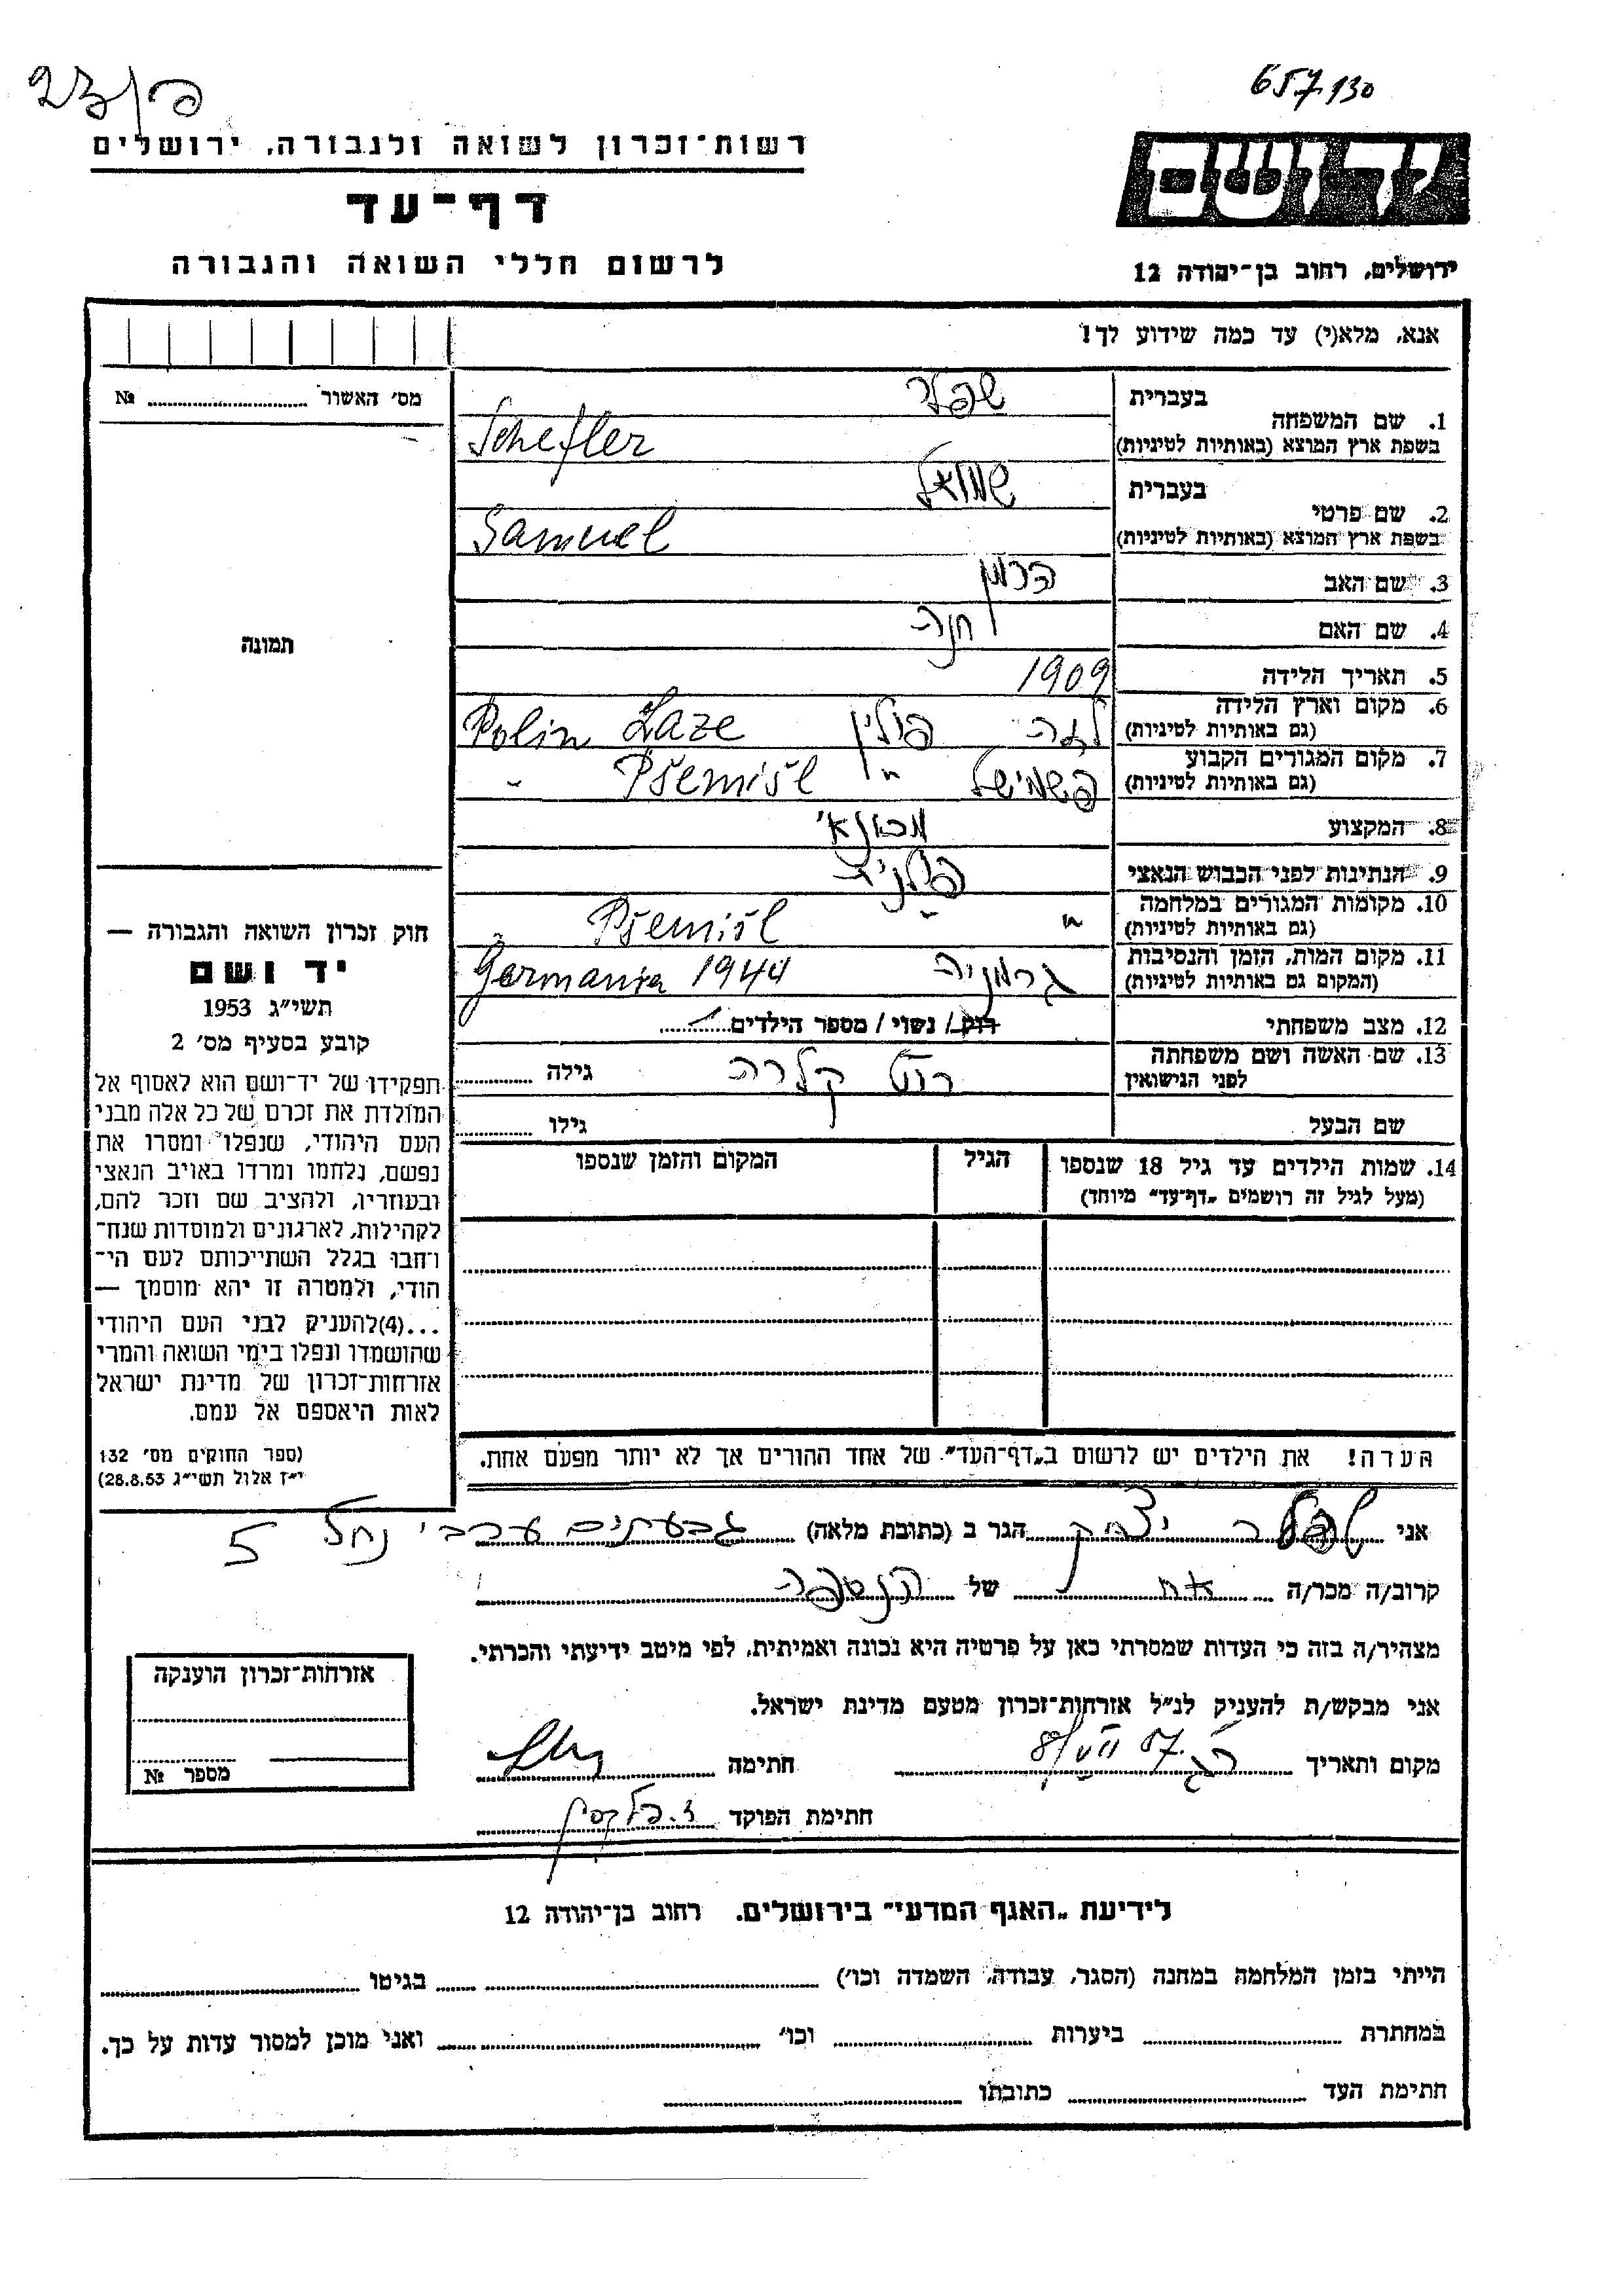 657130
רשות־זכרון לשואה ולגבורה, ירושלים
ידושם
דף־עד
לרשום חללי השואה והגבורה
ירושלים, רחוב בן־יהודה 12
אנא, מלא(י) עד כמה שידוע לך!
מס׳ האשור № ........
תמונה
בעברית שפלר
1. שם המשפחה
בשפת ארץ המוצא (באותיות לטיניות) Schefler
בעברית שמואל
2. שם פרטי
בשפת ארץ המוצא (באותיות לטיניות) Samuel
3. שם האב הרמן
4. שם האם חנה
5. תאריך הלידה 1909
6. מקום וארץ הלידה
(גם באותיות לטיניות) לזה פולין Łaze Polin
7. מקום המגורים הקבוע
(גם באותיות לטיניות) פשמישל " Pšemišl "
8. המקצוע מכונאי
9. הנתינות לפני הכבוש הנאצי פולנית
10. מקומות המגורים במלחמה
(גם באותיות לטיניות) " " Pšemišl
11. מקום המות, הזמן והנסיבות
(המקום גם באותיות לטיניות) גרמניה Germania 1944
12. מצב משפחתי רוק / נשוי / מספר הילדים ........
13. שם האשה ושם משפחתה
לפני הנישואין רוט קלרה גילה ........
שם הבעל גילו ........
14. שמות הילדים עד גיל 18 שנספו הגיל המקום והזמן שנספו
(מעל לגיל זה רושמים „דף־עד״ מיוחד)
הערה! את הילדים יש לרשום ב„דף־העד״ של אחד ההורים אך לא יותר מפעם אחת.
חוק זכרון השואה והגבורה —
יד ושם
תשי״ג 1953
קובע בסעיף מס׳ 2
תפקידו של יד־ושם הוא לאסוף אל
המולדת את זכרם של כל אלה מבני
העם היהודי, שנפלו ומסרו את
נפשם, נלחמו ומרדו באויב הנאצי
ובעוזריו, ולהציב שם וזכר להם,
לקהילות, לארגונים ולמוסדות שנח־
רחבו בגלל השתייכותם לעם הי־
הודי, ולמטרה זו יהא מוסמך —
...(4)להעניק לבני העם היהודי
שהושמדו ונפלו בימי השואה והמרי
אזרחות־זכרון של מדינת ישראל
לאות היאספם אל עמם.
(ספר החוקים מס׳ 132
י״ז אלול תשי״ג 28.8.53)
אני שפלר יצחק הגר ב (כתובת מלאה) גבעתיים ערבי נחל 5
קרוב/ה מכר/ה אח של הנספה
מצהיר/ה בזה כי העדות שמסרתי כאן על פרטיה היא נכונה ואמיתית, לפי מיטב ידיעתי והכרתי.
אני מבקש/ת להעניק לנ״ל אזרחות־זכרון מטעם מדינת ישראל.
מקום ותאריך 8/VII 57 חתימה
חתימת הפוקד
אזרחות־זכרון הוענקה
מספר №
לידיעת „האגף המדעי״ בירושלים. רחוב בן־יהודה 12
הייתי בזמן המלחמה במחנה (הסגר, עבודה, השמדה וכו׳) ........ בגיטו ........
במחתרת ........ ביערות ........ וכו׳ ........ ואני מוכן למסור עדות על כך.
חתימת העד ........ כתובתו ........